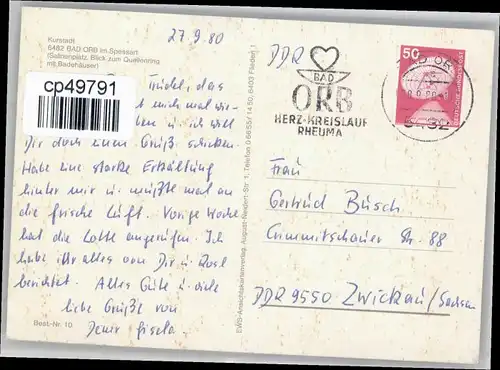 27.9.80
Kurstadt
6482 BAD ORB im Spessart
(Salinenplatz, Blick zum Quellenring
mit Badehäuser)
cp49791
Trudel, das
mich mal wie-
und ich will
Dir doch einen Gruß schicken.
Habe eine starke Erkältung
hinter mir u. mußte mal an
die frische Luft. Vorige Woche
hat die Lotte angerufen. Ich
habe ihr alles von Dir u. Rosel
berichtet. Alles Gute u. viele
liebe Grüße von
Deiner Gisela.
Best-Nr. 10
EWB-Ansichtskartenverlag, August-Neidert-Str. 1, Telefon 0 66 55/14 50, 6403 Flieden 1
DDR
BAD
ORB
HERZ-KREISLAUF
RHEUMA
50
DEUTSCHE BUNDESPOST
BAD ORB
6482
Frau
Gertrud Büsch
Crimmitschauer Str. 88
DDR 9550 Zwickau/Sachsen